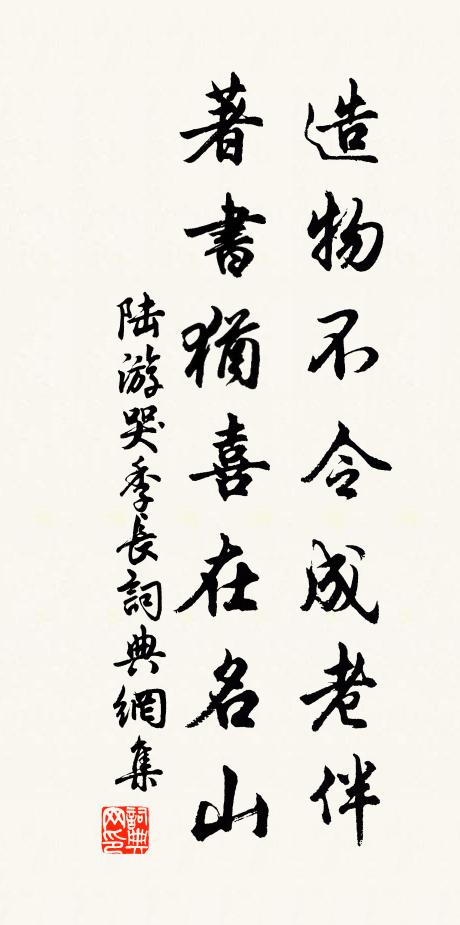 造物不令成老伴
著書猶喜在名山
陸游哭季長詞典網集
詞典网印